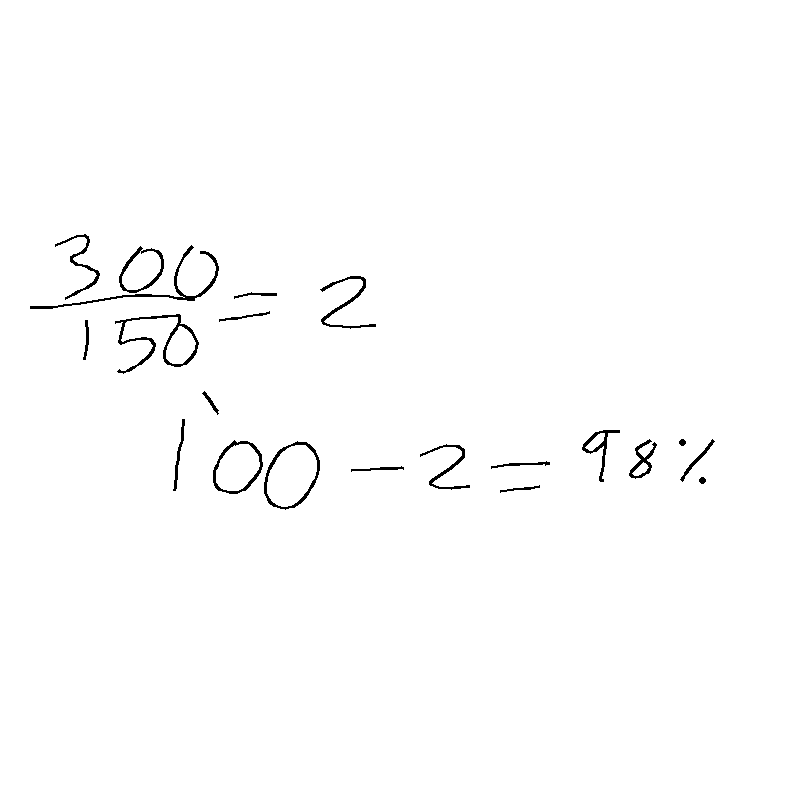 300/150 = 2
100 - 2 = 98%